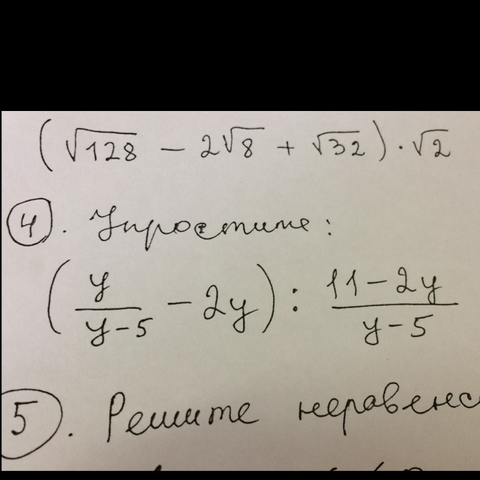 (√128 − 2√8 + √32) · √2
4. Упростите:
(y/(y−5) − 2y) : (11−2y)/(y−5)
5. Решите неравенс